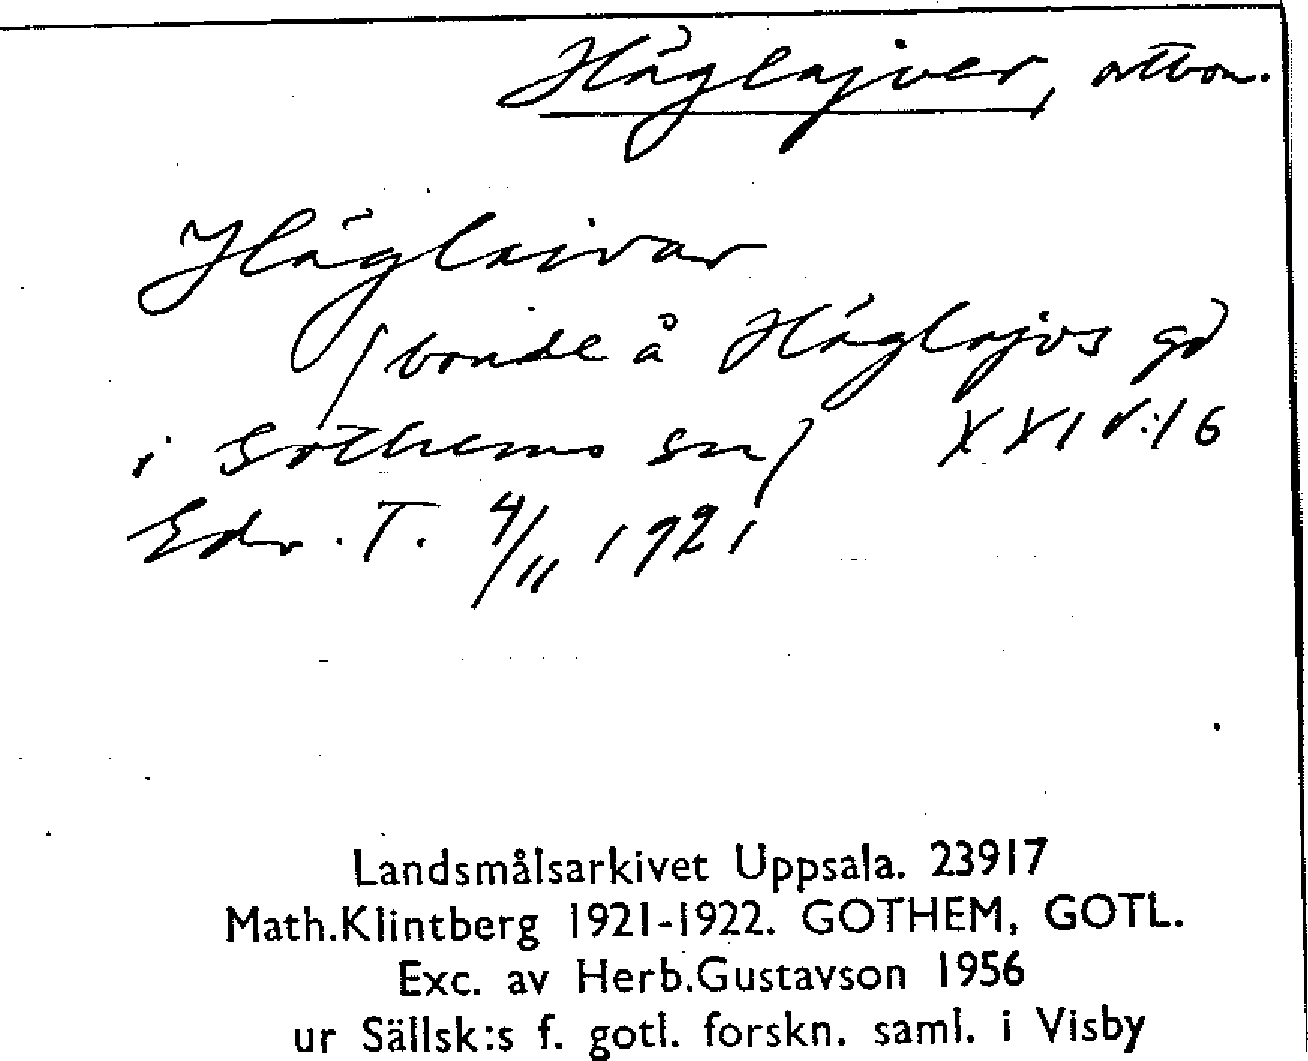 Häglajver, ortbon.
Häglaivar
(bonde å Häglajvs gd
i Gothems sn) XXI V:16
Edv. T. 4/11 1921
Landsmålsarkivet Uppsala. 23917
Math.Klintberg 1921-1922. GOTHEM, GOTL.
Exc. av Herb.Gustavson 1956
ur Sällsk:s f. gotl. forskn. saml. i Visby